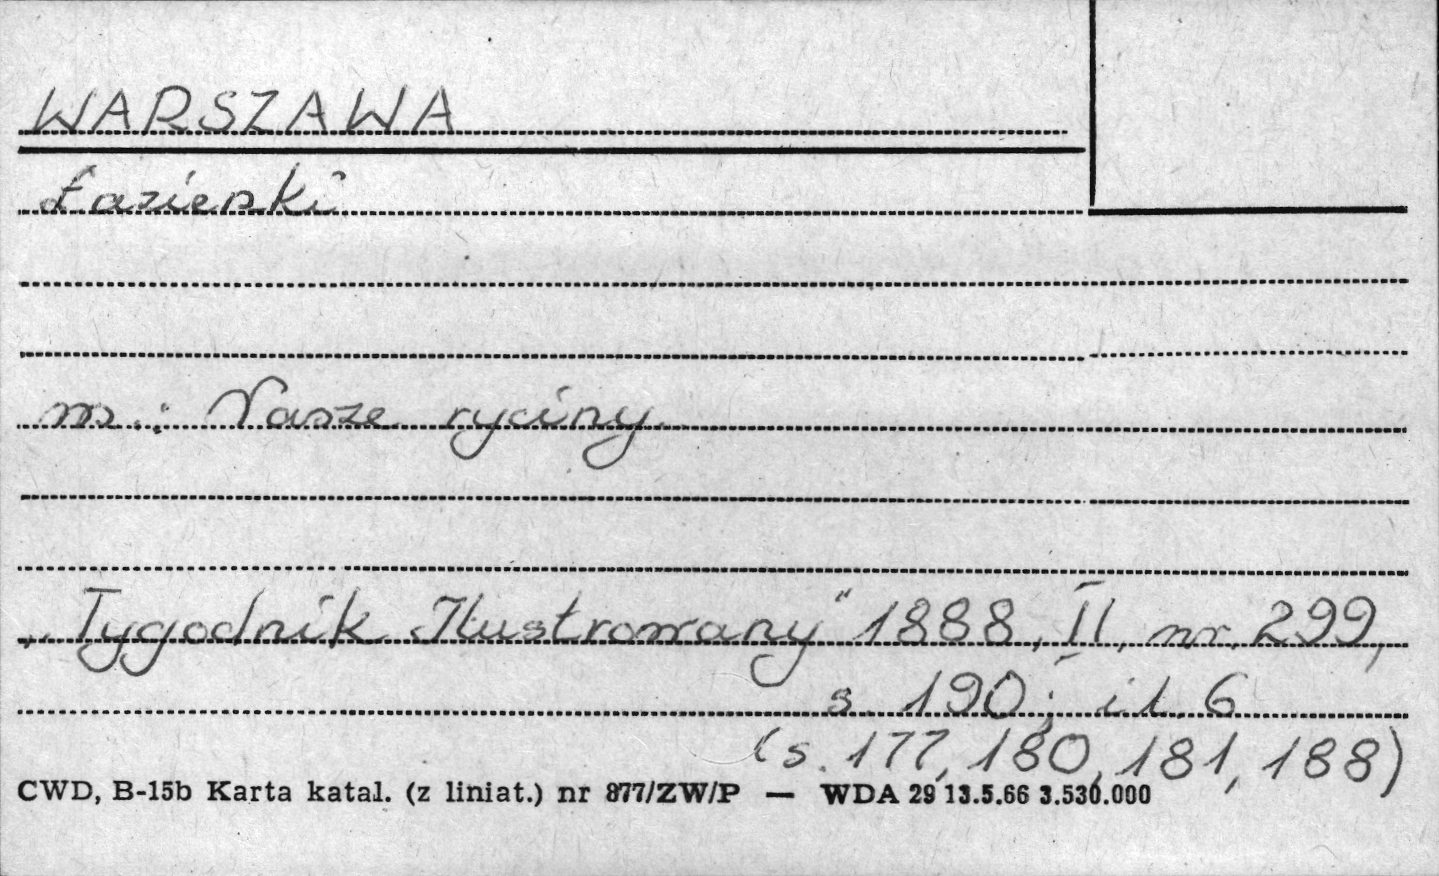 WARSZAWA
Łazienki
w: Nasze ryciny.
„Tygodnik Ilustrowany" 1888, II, nr. 299,
s. 190; il. 6
(s. 177, 180, 181, 188)
CWD, B-15b Karta katal. (z liniat.) nr 877/ZW/P — WDA 29 13.5.66 3.530.000